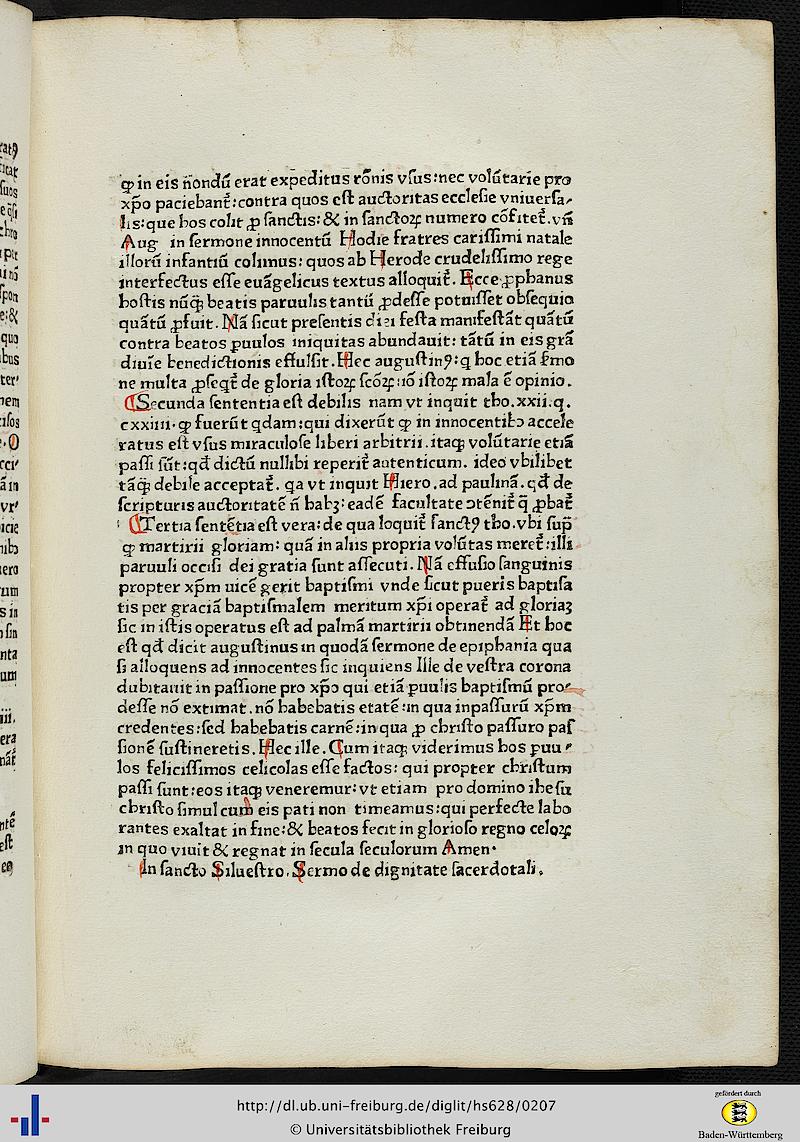 ꝙ in eis nōndū erat expeditus rōnis vſus:nec volūtarie pro
xp̄o paciebant᷑:contra quos eſt auctoritas eccleſie vniuerſa⸗
lis:que hos colit ꝓ ſanctis:& in ſanctoꝝ numero cōfitet᷑. vn̄
Aug in ſermone innocentū Hodie fratres cariſſimi natale
illorū infantiū colimus: quos ab Herode crudeliſſimo rege
interfectus eſſe euāgelicus textus alloquit᷑. Ecce ꝓphanus
hoſtis nūq̄ꝫ beatis paruulis tantū ꝓdeſſe potuiſſet obſequio
quātū ꝓfuit. Nā ſicut preſentis diei feſta manifeſtāt quātū
contra beatos ꝑuulos iniquitas abundauit: tātū in eis grā
diuīe benedictionis effulſit. Hec auguſtinꝰ: q hoc etiā ẜmo
ne multa ꝓſeqt᷑ de gloria iſtoꝝ ſcōꝝ:iō iſtoꝝ mala ē opinio.
Secunda ſententia eſt debilis nam vt inquit tho.xxii.q.
cxxiiii. ꝙ fuerūt qdam:qui dixerūt ꝙ in innocentibꝰ accele
ratus eſt vſus miraculoſe liberi arbitrii. itaqꝫ volūtarie etiā
paſſi ſūt:qd̄ dictū nullibi reperit᷑ autenticum. ideo vbilibet
tāqꝫ debile acceptat᷑. qa vt inquit Hiero. ad paulinā. qd̄ de
ſcripturis auctoritatē n̄ habꝫ: eadē facultate ↄtēnit᷑ q̄ ꝓbat᷑
Tertia ſentētia eſt vera: de qua loquit᷑ ſanctꝰ tho. vbi ſup̄
ꝙ martirii gloriam: quā in aliis propria volūtas meret᷑:illi
paruuli occiſi dei gratia ſunt aſſecuti. Nā effuſio ſanguinis
propter xp̄m uicē gerit baptiſmi vnde ſicut pueris baptiſa
tis per graciā baptiſmalem meritum xp̄i operat᷑ ad gloriaꝫ
ſic in iſtis operatus eſt ad palmā martirii obtinendā Et hoc
eſt qd̄ dicit auguſtinus in quodā ſermone de epiphania qua
ſi alloquens ad innocentes ſic inquiens Ille de veſtra corona
dubitauit in paſſione pro xp̄o qui etiā ꝑuulis baptiſmū pro⸗
deſſe nō extimat. nō habebatis etatē:in qua inpaſſurū xp̄m
credentes:ſed habebatis carnē:in qua ꝓ chriſto paſſuro paſ
ſionē ſuſtineretis. Hec ille. Cum itaqꝫ viderimus hos ꝑuu⸗
los feliciſſimos celicolas eſſe factos: qui propter chriſtum
paſſi ſunt:eos itaqꝫ veneremur: vt etiam pro domino iheſu
chriſto ſimul cum eis pati non timeamus:qui perfecte labo
rantes exaltat in fine:& beatos fecit in glorioſo regno celoꝝ
in quo viuit & regnat in ſecula ſeculorum Amen.
In ſancto Silueſtro. Sermo de dignitate ſacerdotali.
http://dl.ub.uni-freiburg.de/diglit/hs628/0207
© Universitätsbibliothek Freiburg
gefördert durch
Baden-Württemberg